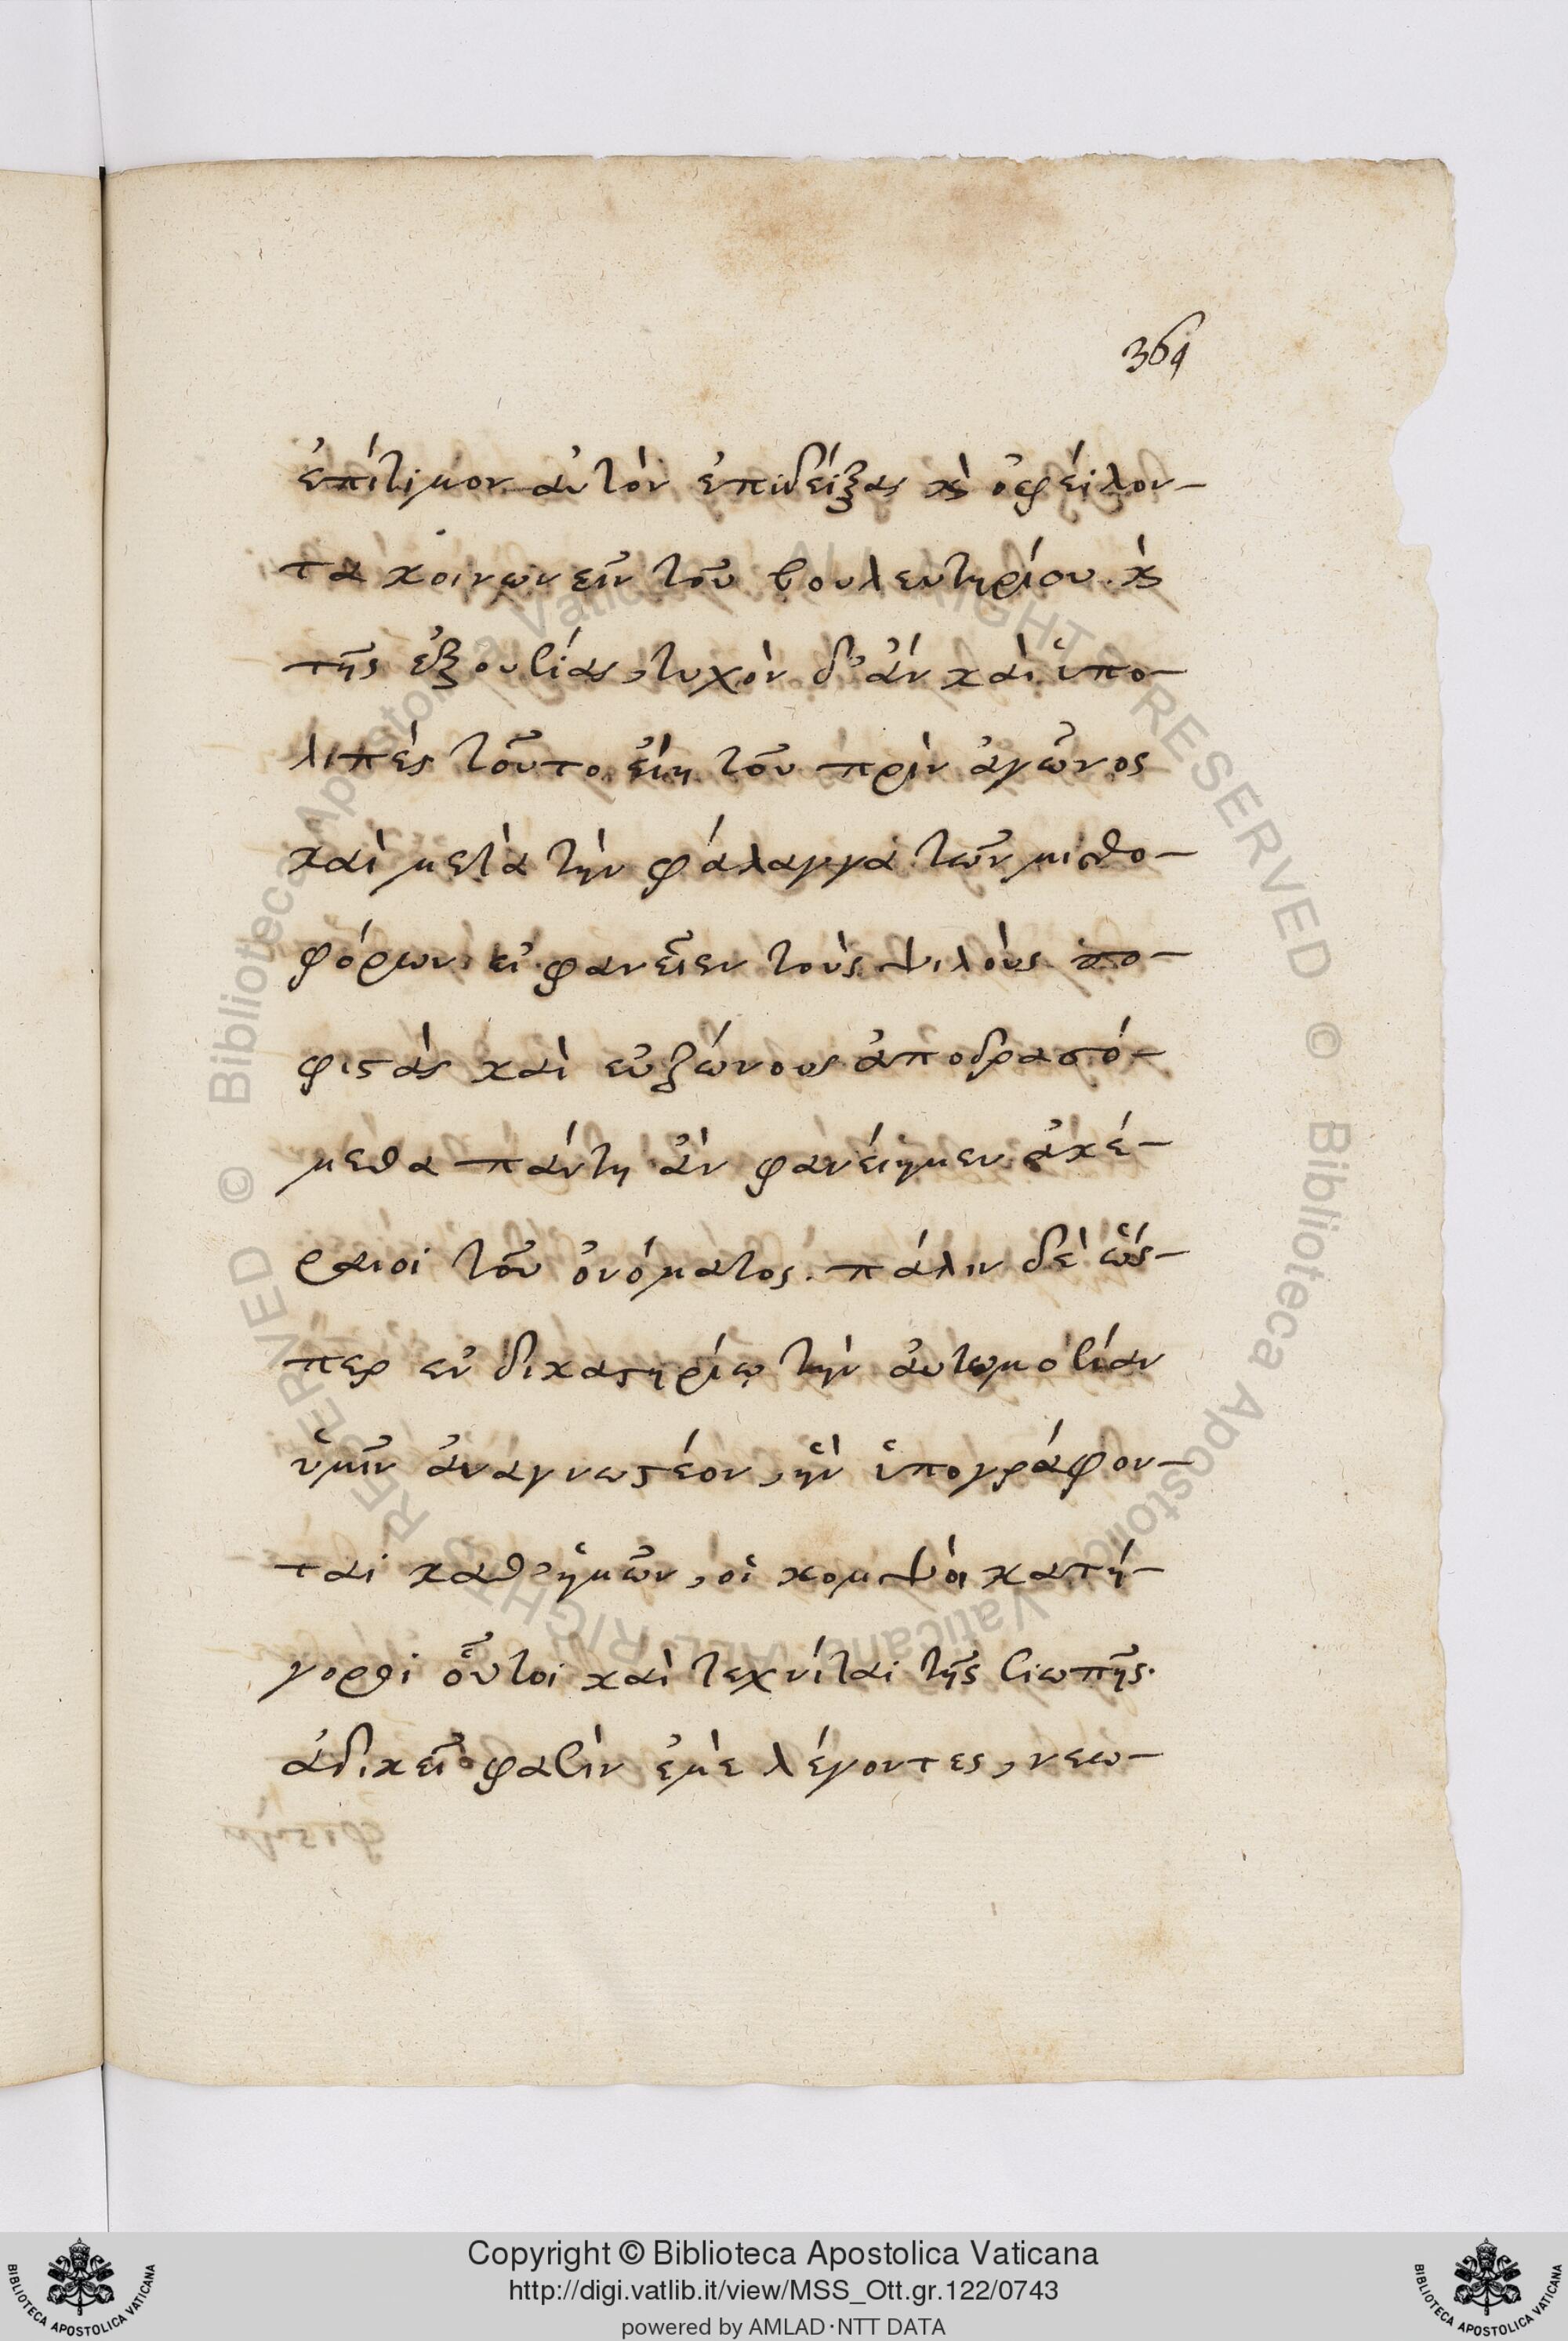 364
ἐπίτιμον αὐτὸν ἐπιδείξας κὶ ὀφείλον-
τα κοινωνεῖν τοῦ βουλευτηρίου. κὶ
τῆς ἐξουσίας, τυχὸν δ' ἂν καὶ ὑπο-
λιπὲς τοῦτο εἴη τοῦ πρὶν ἀγῶνος
καὶ μετὰ τὴν φάλαγγα τῶν μισθο-
φόρων. εἰ φανεῖεν τοὺς ψιλοὺς
φιστὰς καὶ εὐζώνους ἀποδρασό-
μεθα πάντη ἂν φανείημεν ἀκέ-
ραιοι τοῦ ὀνόματος. πάλιν δὲ ὥς-
περ ἐν δικαστηρίῳ τὴν ἀντωμοσίαν
ὑμῖν ἀναγνωστέον, ἣν ὑπογράφον-
ται καθ' ἡμῶν, οἱ κομψοὶ κατή-
γοροι οὗτοι καὶ τεχνίται τῆς σιωπῆς.
ἀδικεῖ φασὶν ἐμὲ λέγοντες, νεω-
Copyright © Biblioteca Apostolica Vaticana
http://digi.vatlib.it/view/MSS_Ott.gr.122/0743
powered by AMLAD·NTT DATA
BIBLIOTECA APOSTOLICA VATICANA
BIBLIOTECA APOSTOLICA VATICANA
© Biblioteca Apostolica Vaticana ALL RIGHTS RESERVED
© Biblioteca Apostolica Vaticana ALL RIGHTS RESERVED